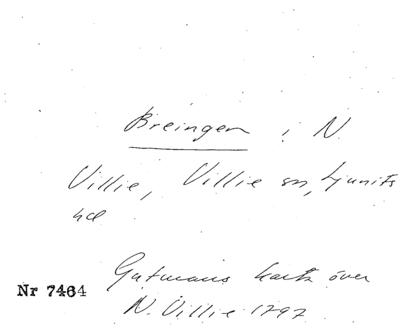 Breingen i N.
Villie, Villie sn, Ljunits
hd
Gutmans karta över
Nr 7464
N. Villie 1797